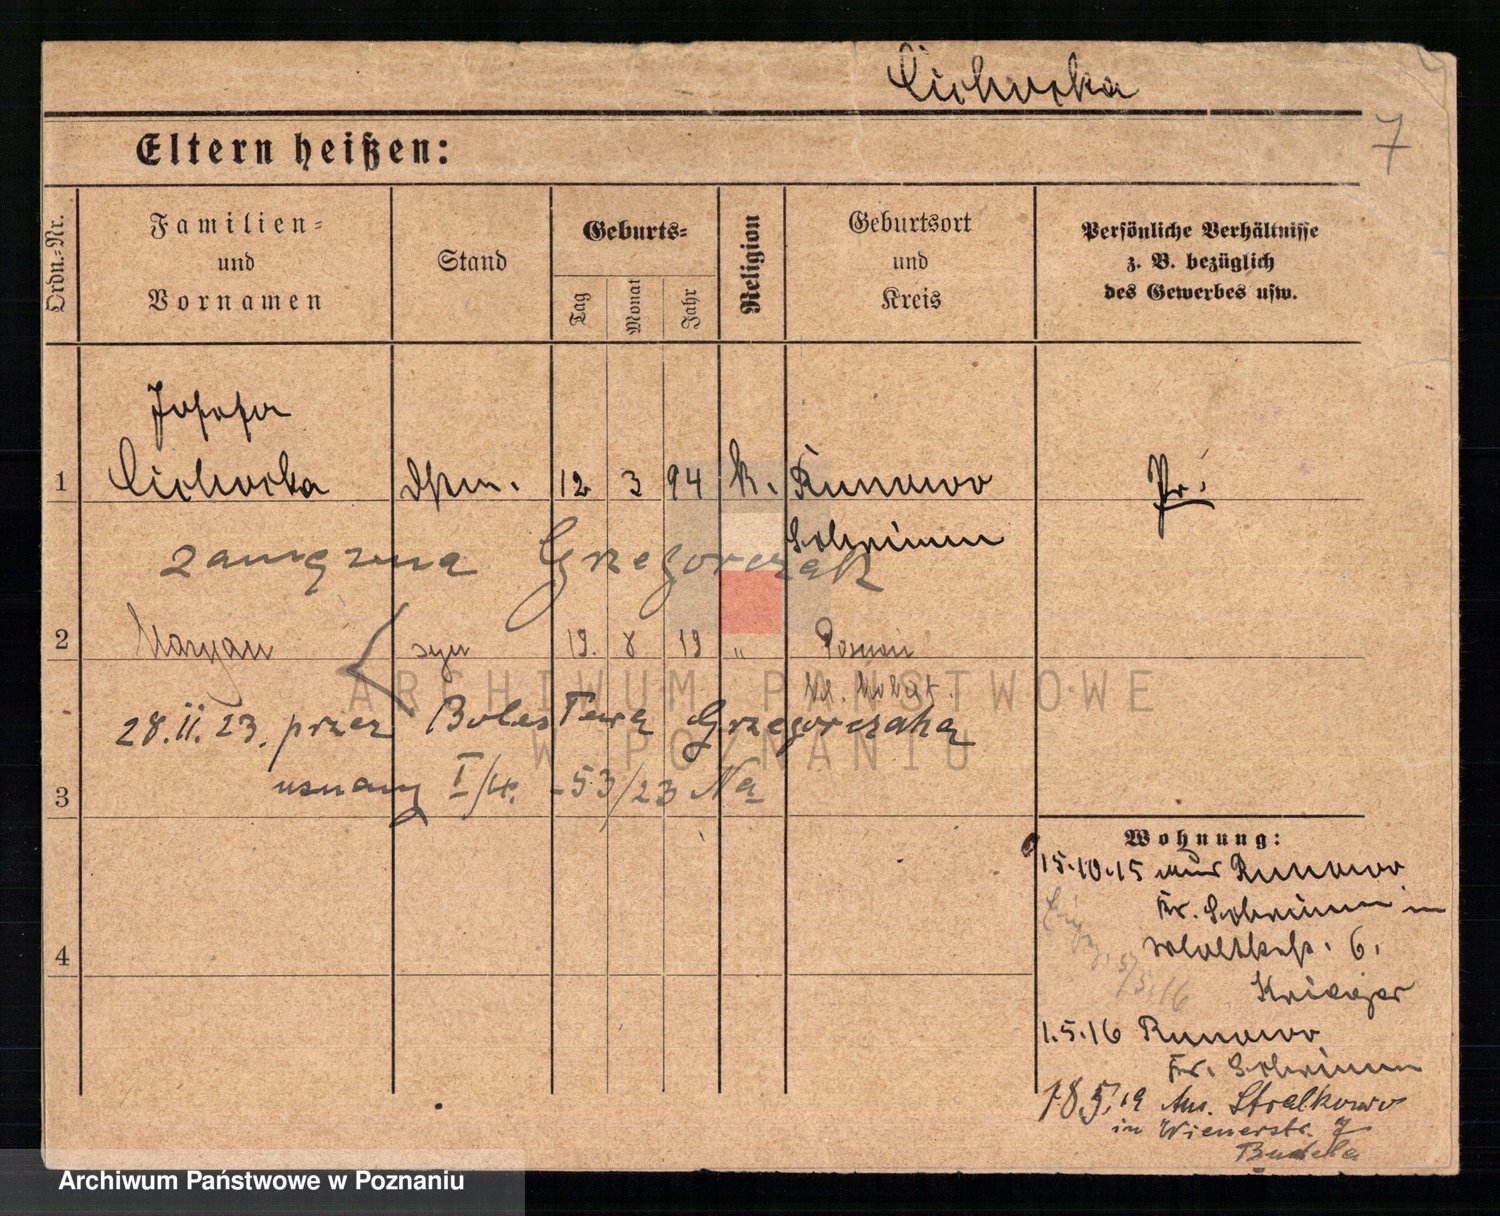 Cichocka
7
Eltern heißen:
Ordn.-Nr.
Familien-
und
Vornamen
Stand
Geburts-
Tag
Monat
Jahr
Religion
Geburtsort
und
Kreis
Persönliche Verhältnisse
z. B. bezüglich
des Gewerbes usw.
Josefa
1 Cichocka 12 3 94 k. Runowo Pr.
Schrimm
zamężna Grzegorczak
2 Maryan syn 19. 8 19 " Posnan
28.II.23. przez Bolesława Grzegorczaka
3 uznany I/4. -53/23 Na
Wohnung:
15.10.15 aus Runowo
Kr. Schrimm in
Moltkestr. 6.
Krieger
5/5.16
4
1.5.16 Runowo
Kr. Schrimm
18.5.19 Aus. Stralkowo
in Wienerstr. 7
Budela
ARCHIWUM PAŃSTWOWE
W POZNANIU
Archiwum Państwowe w Poznaniu